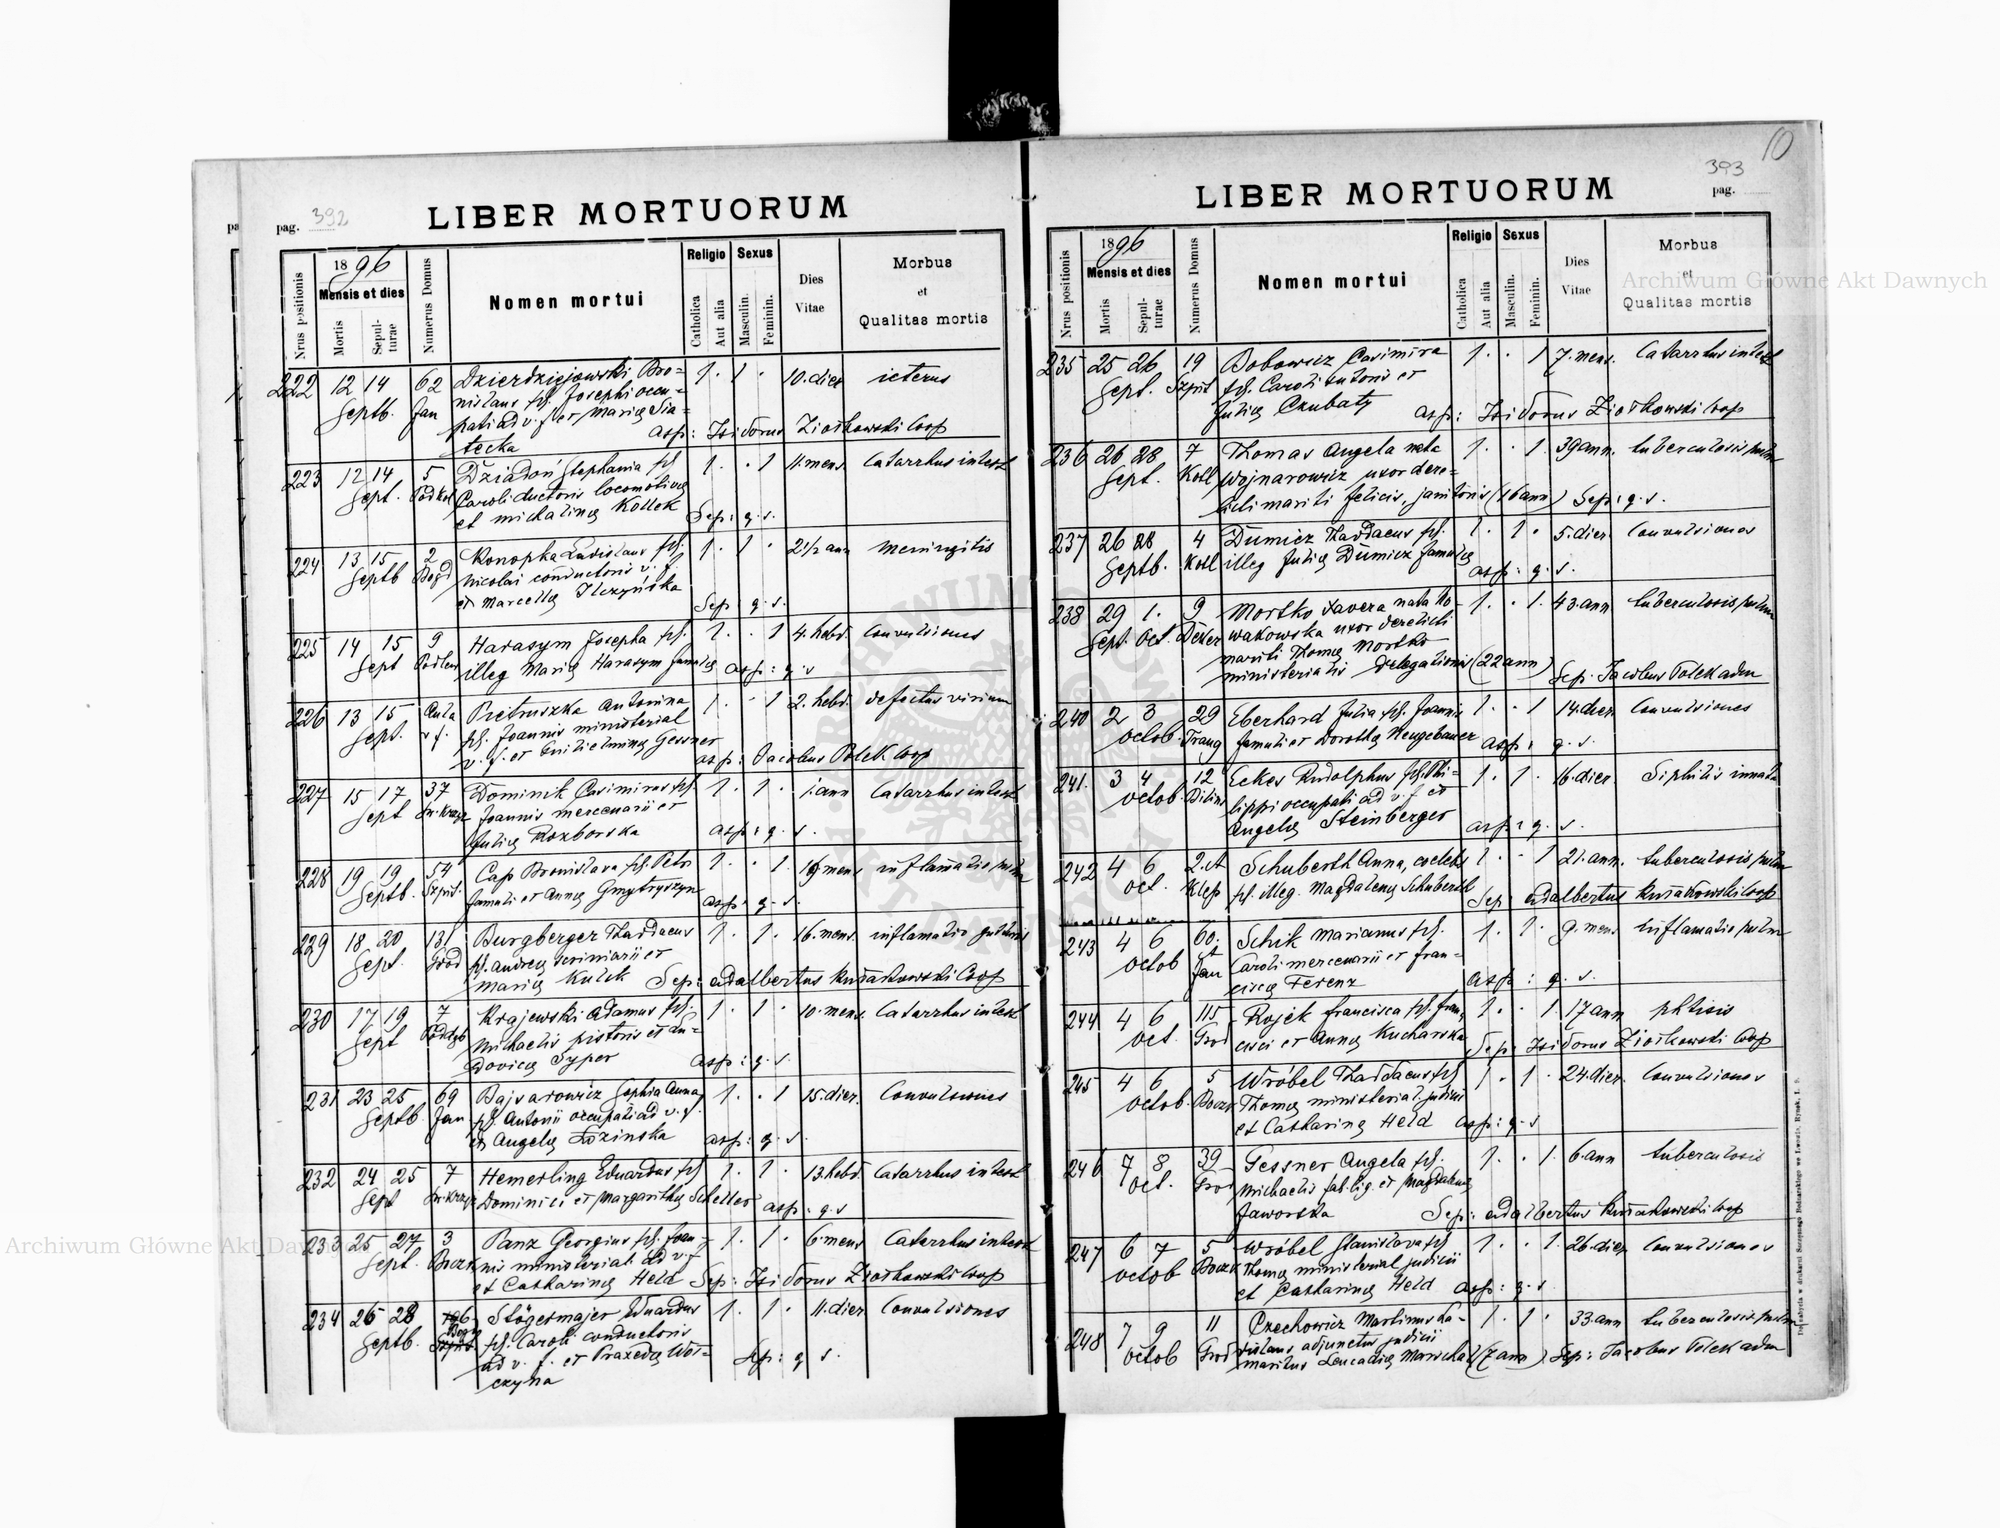 10
pag. 392
LIBER MORTUORUM
Nrus positionis
1896
Mensis et dies
Mortis
Sepul-
turae
Numerus Domus
Nomen mortui
Religio
Catholica
Aut alia
Sexus
Masculin.
Feminin.
Dies
Vitae
Morbus
et
Qualitas mortis
222 12 14 62 Dzierdziejowski Bro= 1 · 1 · 10. dier icterus
Septb. Jan nislaus fil. Josephi occu=
pati ad v. f. et Mariæ Sia=
asp: Isidorus Ziołkowski Coop
tecka
223 12 14 5 Dziadoń Stephania fil. 1 · · 1 11. mens. Catarrhus intest
Sept. Podkol Caroli ductoris locomotivæ
et Michalinæ Kollek Sep: q. s.
224 13 15 2 Konopka Ladislaus fil. 1 · 1 · 2 1/2 ann Meningitis
Septb Bogd Nicolai conductoris v. f.
et Marcellæ Ilczyńska Sep: q. s.
225 14 15 9 Harasym Josepha fil. 1 · · 1 4. hebd. Convulsiones
Sept Podlew illeg Mariæ Harasym famulæ asp: q. s
226 13 15 Aula Pietruszka Antonina 1 · · 1 2. hebd. defectus virium
Sept. v. f. fil. Joannis ministerial
v. f. et Guilielminæ Gessner asp: Jacobus Polek Coop
227 15 17 37 Dominik Casimirus fil. 1 · 1 · 1. ann Catarrhus intest
Sept Joannis mercenarii et
Juliæ Rozborska asp: q. s.
228 19 19 54 Cap Bronislava fil. Petri 1 · · 1 mens inflamatio pulm
Septb. Szpit. famuli et Annæ Gmytryszyn asp: q. s.
229 18 20 131 Burgberger Thaddaeus 1 · 1 · 16. mens. inflamatio pulmonis
Sept. Grod fil. Andreæ scriniarii et
Mariæ Kulik Sep: Adalbertus Coop
230 17 19 7 Krajewski Adamus fil. 1 · 1 · 10. mens. Catarrhus intest
Sept Podzb Michaelis pistoris et Lu=
dovicæ Syper asp: q. s.
231 23 25 69 Bajsarowicz Sophia Anna 1 · · 1 15. dier. Convulsiones
Septb. Jan fil. Antonii occupati ad v. f.
et Angelæ Łozinska asp: q. s.
232 24 25 7 Hemerling Eduardus fil 1 · 1 · 13. hebd. Catarrhus intest
Sept Dominici et Margarithæ Scheller asp: q. s
233 25 27 3 Panz Georgius fil. Joan= 1 · 1 · 6. mens Catarrhus intest
Sept. Boczn nis ministerial. ad v. f
et Catharinæ Held Sep: Isidorus Ziołkowski Coop
234 26 28 Stögermajer Eduardus 1 · 1 · 11. dier Convulsiones
Septb. fil. Caroli conductoris
ad v. f. et Praxedæ Wos= Sep: q s.
czyna
393
pag.
LIBER MORTUORUM
Nrus positionis
1896
Mensis et dies
Mortis
Sepul-
turae
Numerus Domus
Nomen mortui
Religio
Catholica
Aut alia
Sexus
Masculin.
Feminin.
Dies
Vitae
Morbus
et
Qualitas mortis
235 25 26 19 Bobowicz Casimira 1 · · 1 7. mens. Catarrhus intest
Sept. Szpit fil. Caroli sutoris et
Juliæ Czubaty asp: Isidorus Ziołkowski Coop
236 26 28 7 Thomas Angela nata 1 · · 1 39 ann. tuberculosis pulm
Sept. Kotl Wojnarowicz uxor dere=
licti mariti Felicis, janitoris (16 ann) Sep: q. s.
237 26 28 4 Dumicz Thaddaeus fil. 1 · 1 · 5. dier. Convulsiones
Septb. Kotl illeg Juliæ Dumicz famulæ asp: q. s.
238 29 1. 9 Mostko Xavera nata No= 1 · · 1. 43. ann tuberculosis pulm
Sept. Oct. wakowska uxor derelicti
mariti Thomæ Mostko
ministerialis Delegationis (22 ann) Sep. Jacobus Polek adm
240 2 3 29 Eberhard Julia fil. Joannis 1 · · 1 14. dier Convulsiones
Octob. Traug famuli et Dorothæ Neugebauer asp: q. s.
241. 3 4 12 Eckes Rudolphus fil. Phi= 1 · 1 · 16. dier. Siphilis innata
Octob lippi occupati ad v. f et
Angelæ Steinberger asp: q. s.
242 4 6 2. ct Schuberth Anna, coelebs 1 · · 1 21. ann. tuberculosis pulm
Oct. Klep fil. illeg. Magdalenæ Schuberth Sep: Adalbertus Coop
243 4 6 60. Schik Marianus fil. 1 · 1 · 9. mens inflamatio pulm
Octob ct Caroli mercenarii et Fran=
Jan ciscæ Ferenz asp: q. s.
244 4 6 115 Rojek Francisca fil. Fran= 1 · · 1. 17 ann phtisis
Oct. Grod cisci et Annæ Kucharska Sep: Isidorus Ziołkowski Coop
245 4 6 5 Wróbel Thaddaeus fil 1 · 1 · 24. dier. Convulsiones
Octob. Boczn Thomæ ministerial. judicii
et Catharinæ Held asp: q. s
246 7 8 39 Gessner Angela fil. 1 · · 1. 6. ann tuberculosis
Oct. Grod Michaelis fab. lig. et Magdalenæ
Jaworska Sep: Adalbertus Coop
247 6 7 5 Wróbel Stanislava fil 1 · · 1. 26. dier Convulsiones
Octob Boczn Thomæ ministerial judicii
et Catharinæ Held asp: q. s.
248 7 9 11 Czechowicz Martinus La= 1 · 1 · 33. ann tuberculosis pulm
Octob Grod dislaus, adjunctus judicii
maritus Leucadiæ Marichal (7 ann) Sep: Jacobus Polek adm
Archiwum Główne Akt Dawnych
Archiwum Główne Akt Dawnych